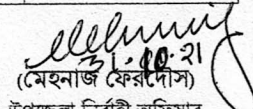 31.10.21
(মেহনাজ ফেরদৌস)
উপজেলা নির্বাহী অফিসার